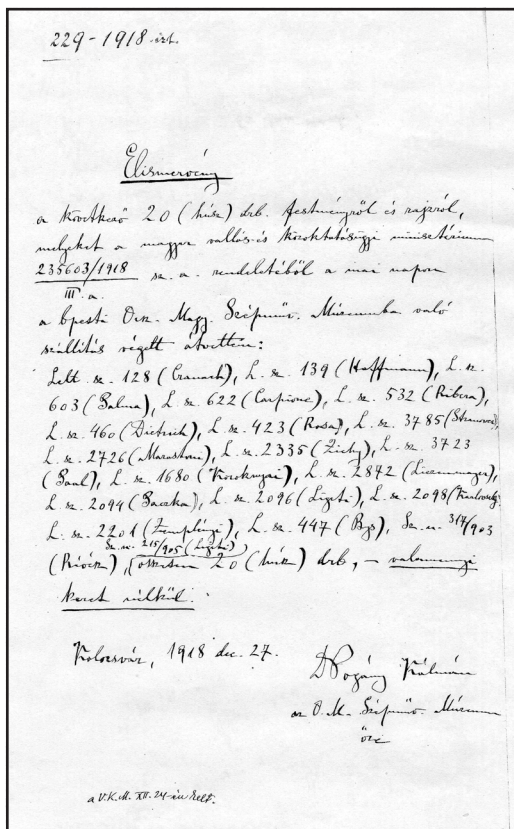 229-1918 ikt.
Elismervény
a következő 20 (húsz) drb. festményről és rajzról,
melyeket a magyar vallás- és közoktatásügyi minisztérium
235603/1918 sz. a. rendeletéből a mai napon
III. a.
a bpesti Orsz. Magy. Szépműv. Múzeumba való
szállítás végett átvettem:
Lelt. sz. 128 (Cranach), L. sz. 139 (Hoffmann), L. sz.
603 (Balma), L. sz. 622 (Carpione), L. sz. 532 (Ribera),
L. sz. 460 (Dietrich), L. sz. 423 (Rosa), L. sz. 3785
L. sz. 2726 (Marastoni), L. sz. 2335 (Zichy), L. sz. 3723
(Paul), L. sz. 1680 L. sz. 2872 (Liezenmayer),
L. sz. 2094 (Paczka), L. sz. 2096 (Ligeti), L. sz. 2098
L. sz. 2201 (Zemplényi), L. sz. 447 Sz. n. 317/903
Sz. n. 215/905 (Ligeti)
összesen 20 (húsz) drb, – valamennyi
keret nélkül.
Kolozsvár, 1918 dec. 27.
Dr Pogány Kálmán
az O. M. Szépműv. Múzeum
őre
a V.K.M. XII. 24-én kelt.